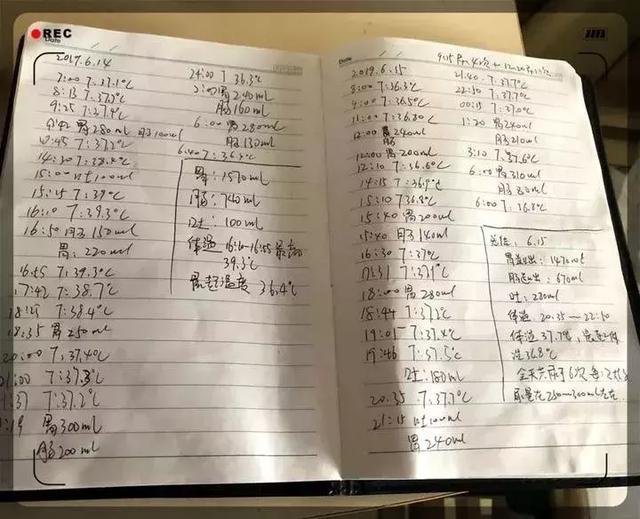 REC
Date
2019.6.14
7:00 T:37.1℃
8:13 T:37.3℃
9:25 T:37.4℃
胃280ml 肠100ml
T:37.2℃
14:30 T:38.2℃
15:00 吐100ml
15:15 T:39℃
16:10 T:39.3℃
16:50 肠150ml
胃:220ml
16:55 T:39.3℃
17:42 T:38.7℃
T:38.4℃
18:35 胃250ml
20:00 T:37.4℃
21:00 T:37.3℃
T:37.2℃
胃300ml
肠200ml
24:00 T 36.3℃
2:00 胃240ml
肠160ml
6:00 胃280ml
肠130ml
6:40 T:36.3℃
胃:1570ml
肠:740ml
吐:100ml
体温 16:10-16:55 最高
39.3℃
晨起温度 36.4℃
Date
2019.6.15
8:00 T:36.3℃
9:00 T:36.5℃
11:00 T:36.80℃
12:00 胃240ml
肠
12:00 胃200ml
12:10 T:36.6℃
14:15 T:36.9℃
15:10 T36.8℃
15:40 胃200ml
15:40 肠140ml
16:30 T:37℃
17:31 T:37.1℃
18:00 胃280ml
18:44 T:37.2℃
19:01 T:37.4℃
19:46 T:37.5℃
吐:180ml
20:35 T:37.7℃
21:15 吐100ml
胃240ml
21:40 T:37.7℃
22:10 T:37.7℃
00:15 T:37.0℃
1:20 胃240ml
肠210ml
3:10 T:37.6℃
6:00 胃310ml
肠80ml
6:00 T:36.8℃
总结: 6.15
胃造出: 1470ml
肠造出: 670ml
吐: 280ml
体温: 20:35—22:10
体温 37.7℃,
36.8℃
全天共尿了6次
尿量在250ml-300ml左右